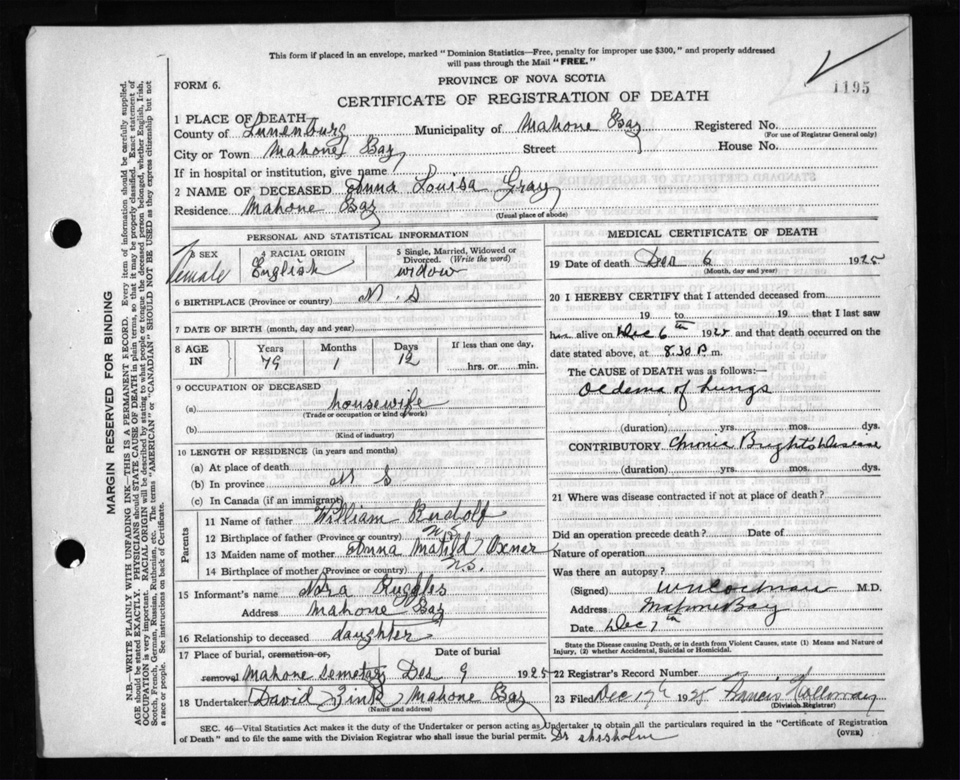 This form if placed in an envelope, marked "Dominion Statistics—Free, penalty for improper use $300," and properly addressed
will pass through the Mail "FREE."
1195
FORM 6.
PROVINCE OF NOVA SCOTIA
CERTIFICATE OF REGISTRATION OF DEATH
1 PLACE OF DEATH
County of Lunenburg Municipality of Mahone Bay Registered No.
(For use of Registrar General only)
City or Town Mahone Bay Street House No.
If in hospital or institution, give name
2 NAME OF DECEASED Anna Louisa Gray
Residence Mahone Bay
(Usual place of abode)
PERSONAL AND STATISTICAL INFORMATION
3 SEX
Female
4 RACIAL ORIGIN
English
5 Single, Married, Widowed or
Divorced (Write the word)
widow
6 BIRTHPLACE (Province or country) N. S
7 DATE OF BIRTH (month, day and year)
8 AGE IN
Years 79
Months 1
Days 12
If less than one day,
hrs. or min.
9 OCCUPATION OF DECEASED
(a) housewife
(Trade or occupation or kind of work)
(b)
(Kind of industry)
10 LENGTH OF RESIDENCE (in years and months)
(a) At place of death
(b) In province N S
(c) In Canada (if an immigrant)
Parents
11 Name of father William Rudolf
12 Birthplace of father (Province or country) N.S
13 Maiden name of mother Anna Matild Oxner
14 Birthplace of mother (Province or country) N.S.
15 Informant's name Nora Ruggles
Address Mahone Bay
16 Relationship to deceased daughter
17 Place of burial, cremation or, Date of burial
removal Mahone Semetary Des 9 1925
18 Undertaker David Zink Mahone Bay
(Name and address)
MEDICAL CERTIFICATE OF DEATH
19 Date of death Dec 6 1925
(Month, day and year)
20 I HEREBY CERTIFY that I attended deceased from
19 to 19 that I last saw
her alive on Dec 6th 1925 and that death occurred on the
date stated above, at 8.30 P m.
The CAUSE of DEATH was as follows:—
Oedema of Lungs
(duration) yrs. mos. dys.
CONTRIBUTORY Chronic Brights Disease
(duration) yrs. mos. dys.
21 Where was disease contracted if not at place of death?
Did an operation precede death? Date of
Nature of operation
Was there an autopsy?
(Signed) M.D.
Address Mahone Bay
Date Dec 7th
State the Disease causing Death, or in death from Violent Causes, state (1) Means and Nature of
Injury, (2) whether Accidental, Suicidal or Homicidal.
22 Registrar's Record Number
23 Filed Dec 17th 1925 Francis Hollomay
(Division Registrar)
SEC. 46—Vital Statistics Act makes it the duty of the Undertaker or person acting as Undertaker to obtain all the particulars required in the "Certificate of Registration
of Death" and to file the same with the Division Registrar who shall issue the burial permit. Dr Chisholm (OVER)
MARGIN RESERVED FOR BINDING
N.B.—WRITE PLAINLY WITH UNFADING INK—THIS IS A PERMANENT RECORD. Every item of information should be carefully supplied.
AGE should be stated EXACTLY. PHYSICIANS should STATE CAUSE OF DEATH in plain terms, so that it may be properly classified. Exact statement of
OCCUPATION is very important. RACIAL ORIGIN will be described by stating to what people or tongue the deceased person belonged, whether English, Irish,
Scotch, French, German, Russian, Ruthenian, etc. The terms "AMERICAN" or "CANADIAN" SHOULD NOT BE USED as they express citizenship but not
a race or people. See instructions on back of Certificate.